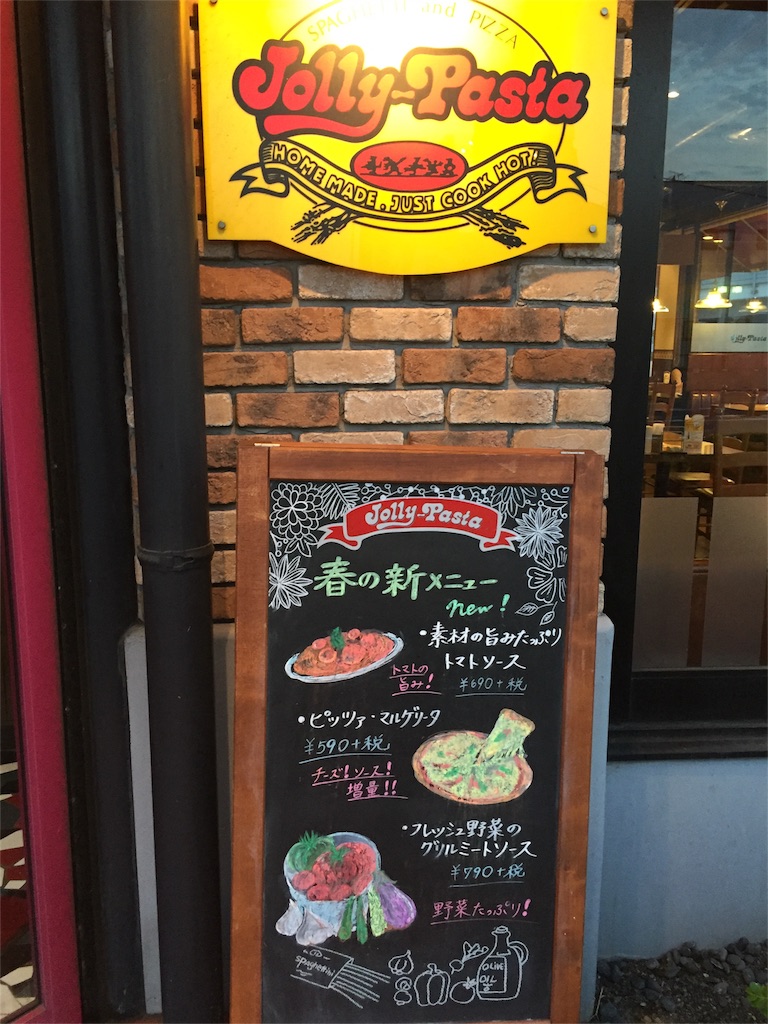 SPAGHETTI and PIZZA
Jolly-Pasta
HOME MADE. JUST COOK HOT!
Jolly-Pasta
Jolly-Pasta
春の新メニュー
new!
・素材の旨みたっぷり
トマトソース
トマトの
旨み!
¥690+税
・ピッツァ・マルゲリータ
¥590+税
チーズ!ソース!
増量!!
・フレッシュ野菜の
グリルミートソース
¥790+税
野菜たっぷり!
spaghettini
OLIVE
OIL